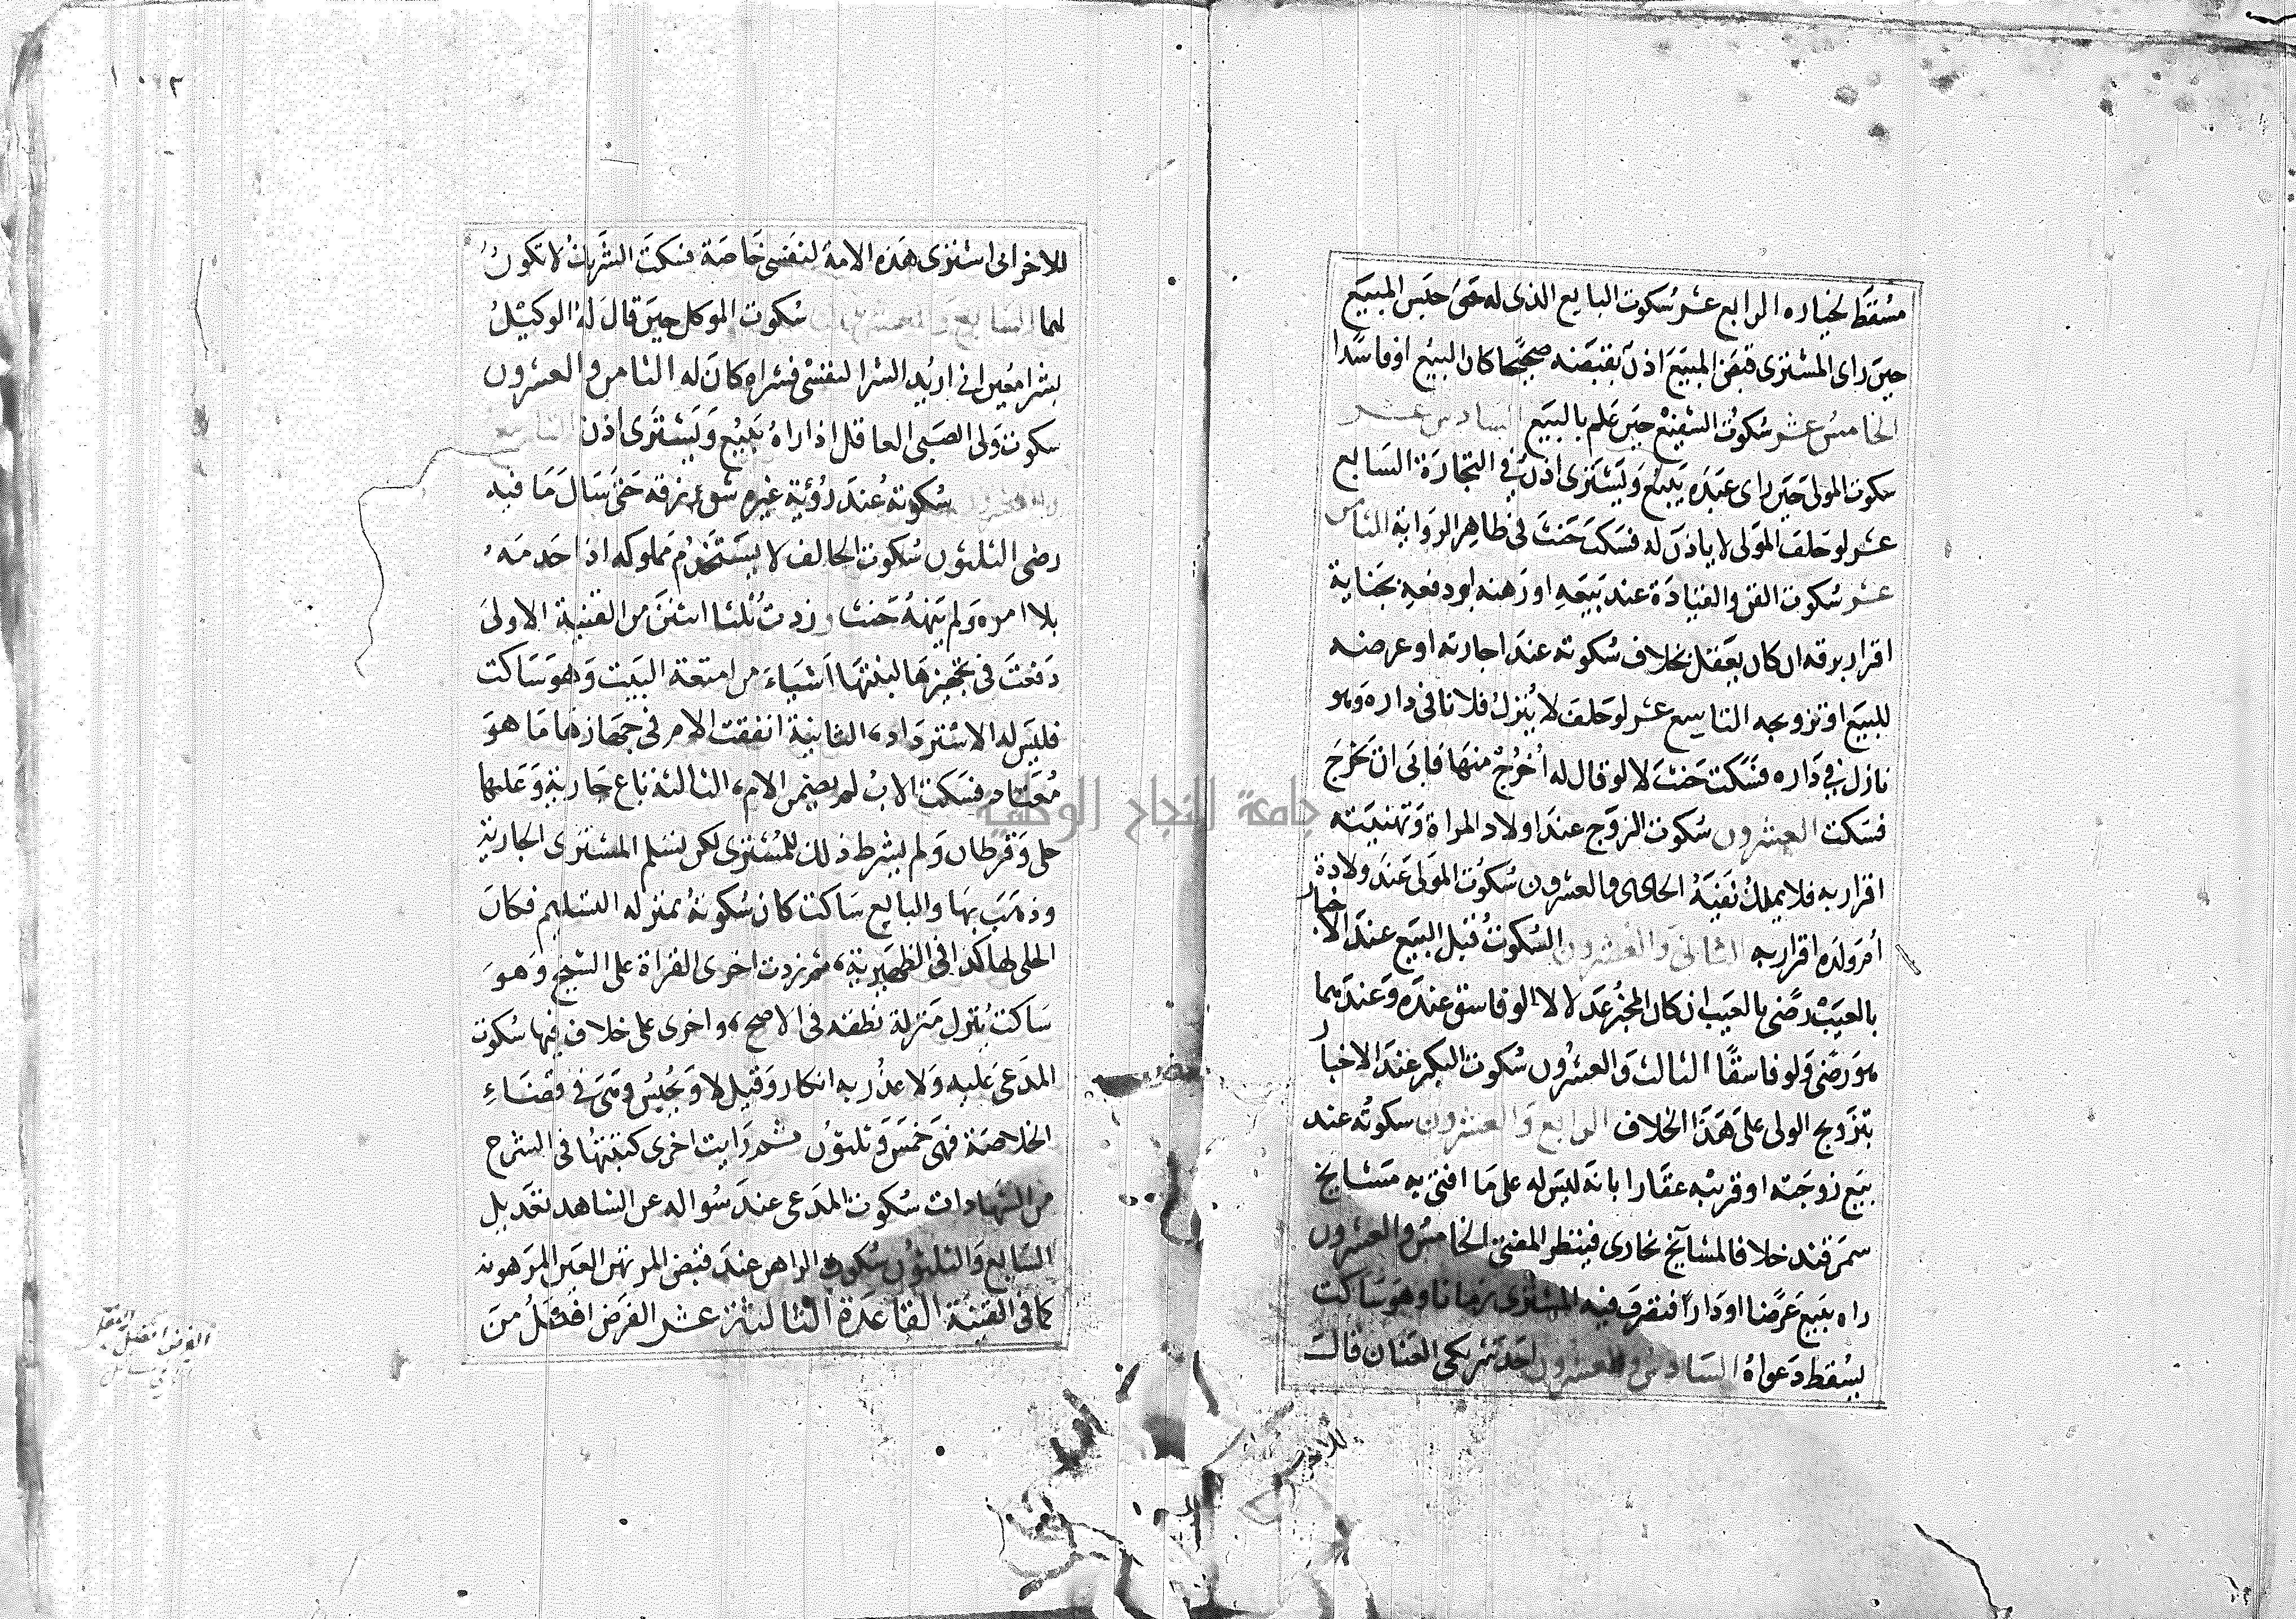 مسقط لخياره الرابع عشر سكوت البايع الذى له حق حبس المبيع
حين راى المشترى قبض المبيع اذن بقبضه صحيحا كان البيع او فاسدا
الخامس عشر سكوت الشفيع حين علم بالبيع السادس عشر
سكوت المولى حين راى عبده يبيع ويشترى اذن فى التجارة السابع
عشر لو حلف المولى لا ياذن له فسكت حنث فى ظاهر الرواية الثامن
عشر سكوت القن وانقياده عند بيعه او رهنه او دفعه بجناية
اقرار برقه ان كان يعقل بخلاف سكوته عند اجارته او عرضه
للبيع او تزويجه التاسع عشر لو حلف لا ينزل فلانا فى داره وهو
نازل فى داره فسكت حنث لا لو قال له اخرج منها فابى ان يخرج
فسكت العشرون سكوت الزوج عند اولاد المراة وتهنيته
اقرار به فلا يملك نفيه الحادى والعشرون سكوت المولى عند ولادة
ام ولده اقرار به الثانى والعشرون السكوت قبل البيع عند الاخبار
بالعيب رضى بالعيب ان كان المخبر عدلا لا لو فاسق عنده وعندهما
هو رضى ولو فاسقا الثالث والعشرون سكوت البكر عند الاخبار
بتزويج الولى على هذا الخلاف الرابع والعشرون سكوته عند
بيع زوجته او قريبه عقارا بانه ليس له على ما افتى به مشايخ
سمرقند خلافا لمشايخ بخارى فينظر المفتى الخامس والعشرون
راه يبيع عرضا او دارا فتصرف فيه المشترى زمانا وهو ساكت
يسقط دعواه السادس والعشرون احد شريكى العنان قالت
للاخر
للاخر انى اشترى هذه الامة لنفسى خاصة فسكت الشريك لا تكون
لهما السابع والعشرون سكوت الموكل حين قال له الوكيل
بشرا معين انى اريد الشرا لنفسى فشراه كان له الثامن والعشرون
سكوت ولى الصبى العاقل اذا راه يبيع ويشترى اذن التاسع
والعشرون سكوته عند رؤية غيره شق زقه حتى سال ما فيه
رضى الثلثون سكوت الحالف لا يستخدم مملوكه اذا خدمه
بلا امره ولم ينهه حنث وزدت ثلثا اثنتين من القنية الاولى
دفعت فى تجهيزها لبنتها اشياء من امتعة البيت وهو ساكت
فليس له الاسترداد، الثانية انفقت الام فى جهازها ما هو
معتاد فسكت الاب لم يضمن الام، الثالثة باع جارية وعليها
حلى وقرطان ولم يشرط ذلك للمشترى لكن تسلم المشترى الجارية
وذهب بها والبايع ساكت كان سكوته بمنزلة التسليم فكان
الحلى لها كذا فى الظهيرية، ثم زدت اخرى القراة على الشيخ وهو
ساكت ينزل منزلة نطقه فى الاصح، واخرى على خلاف فيها سكوت
المدعى عليه ولا عذر به انكار وقيل لا ويحبس وهى فى قضاء
الخلاصة فهى خمس وثلثون ثم رايت اخرى كتبتها فى الشرح
من الشهادات سكوت المدعى عند سواله عن الشاهد تعديل
السابع والثلثون سكوت الراهن عند قبض المرتهن العين المرهونة
كما فى القنية القاعدة الثالثة عشر الفرض افضل من
جامعة النجاح الوطنية